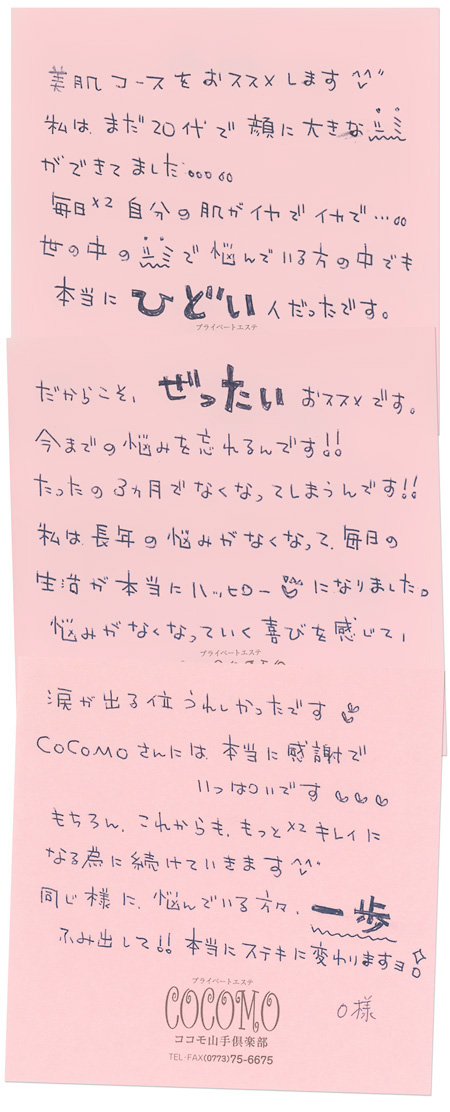 美肌コースをおススメします
私は、まだ20代で顔に大きな
ができてました….。。
毎日×2自分の肌がイヤでイヤで…。。
世の中の で悩んでいる方の中でも
本当にひどい人だったです。
プライベートエステ
だからこそ、ぜったいおススメです。
今までの悩みを忘れるんです!!
たったの3ヵ月でなくなってしまうんです!!
私は長年の悩みがなくなって、毎日の
生活が本当にハッピーになりました。
悩みがなくなっていく喜びを感じて、
プライベートエステ
涙が出る位うれしかったです
COCOMOさんには、本当に感謝で
いっぱいです
もちろん、これからも、もっと×2キレイに
なる為に続けていきます
同じ様に、悩んでいる方々、一歩
ふみ出して!!本当にステキに変わりますヨ
プライベートエステ
COCOMO
ココモ山手倶楽部
TEL・FAX(0773)75-6675
O様